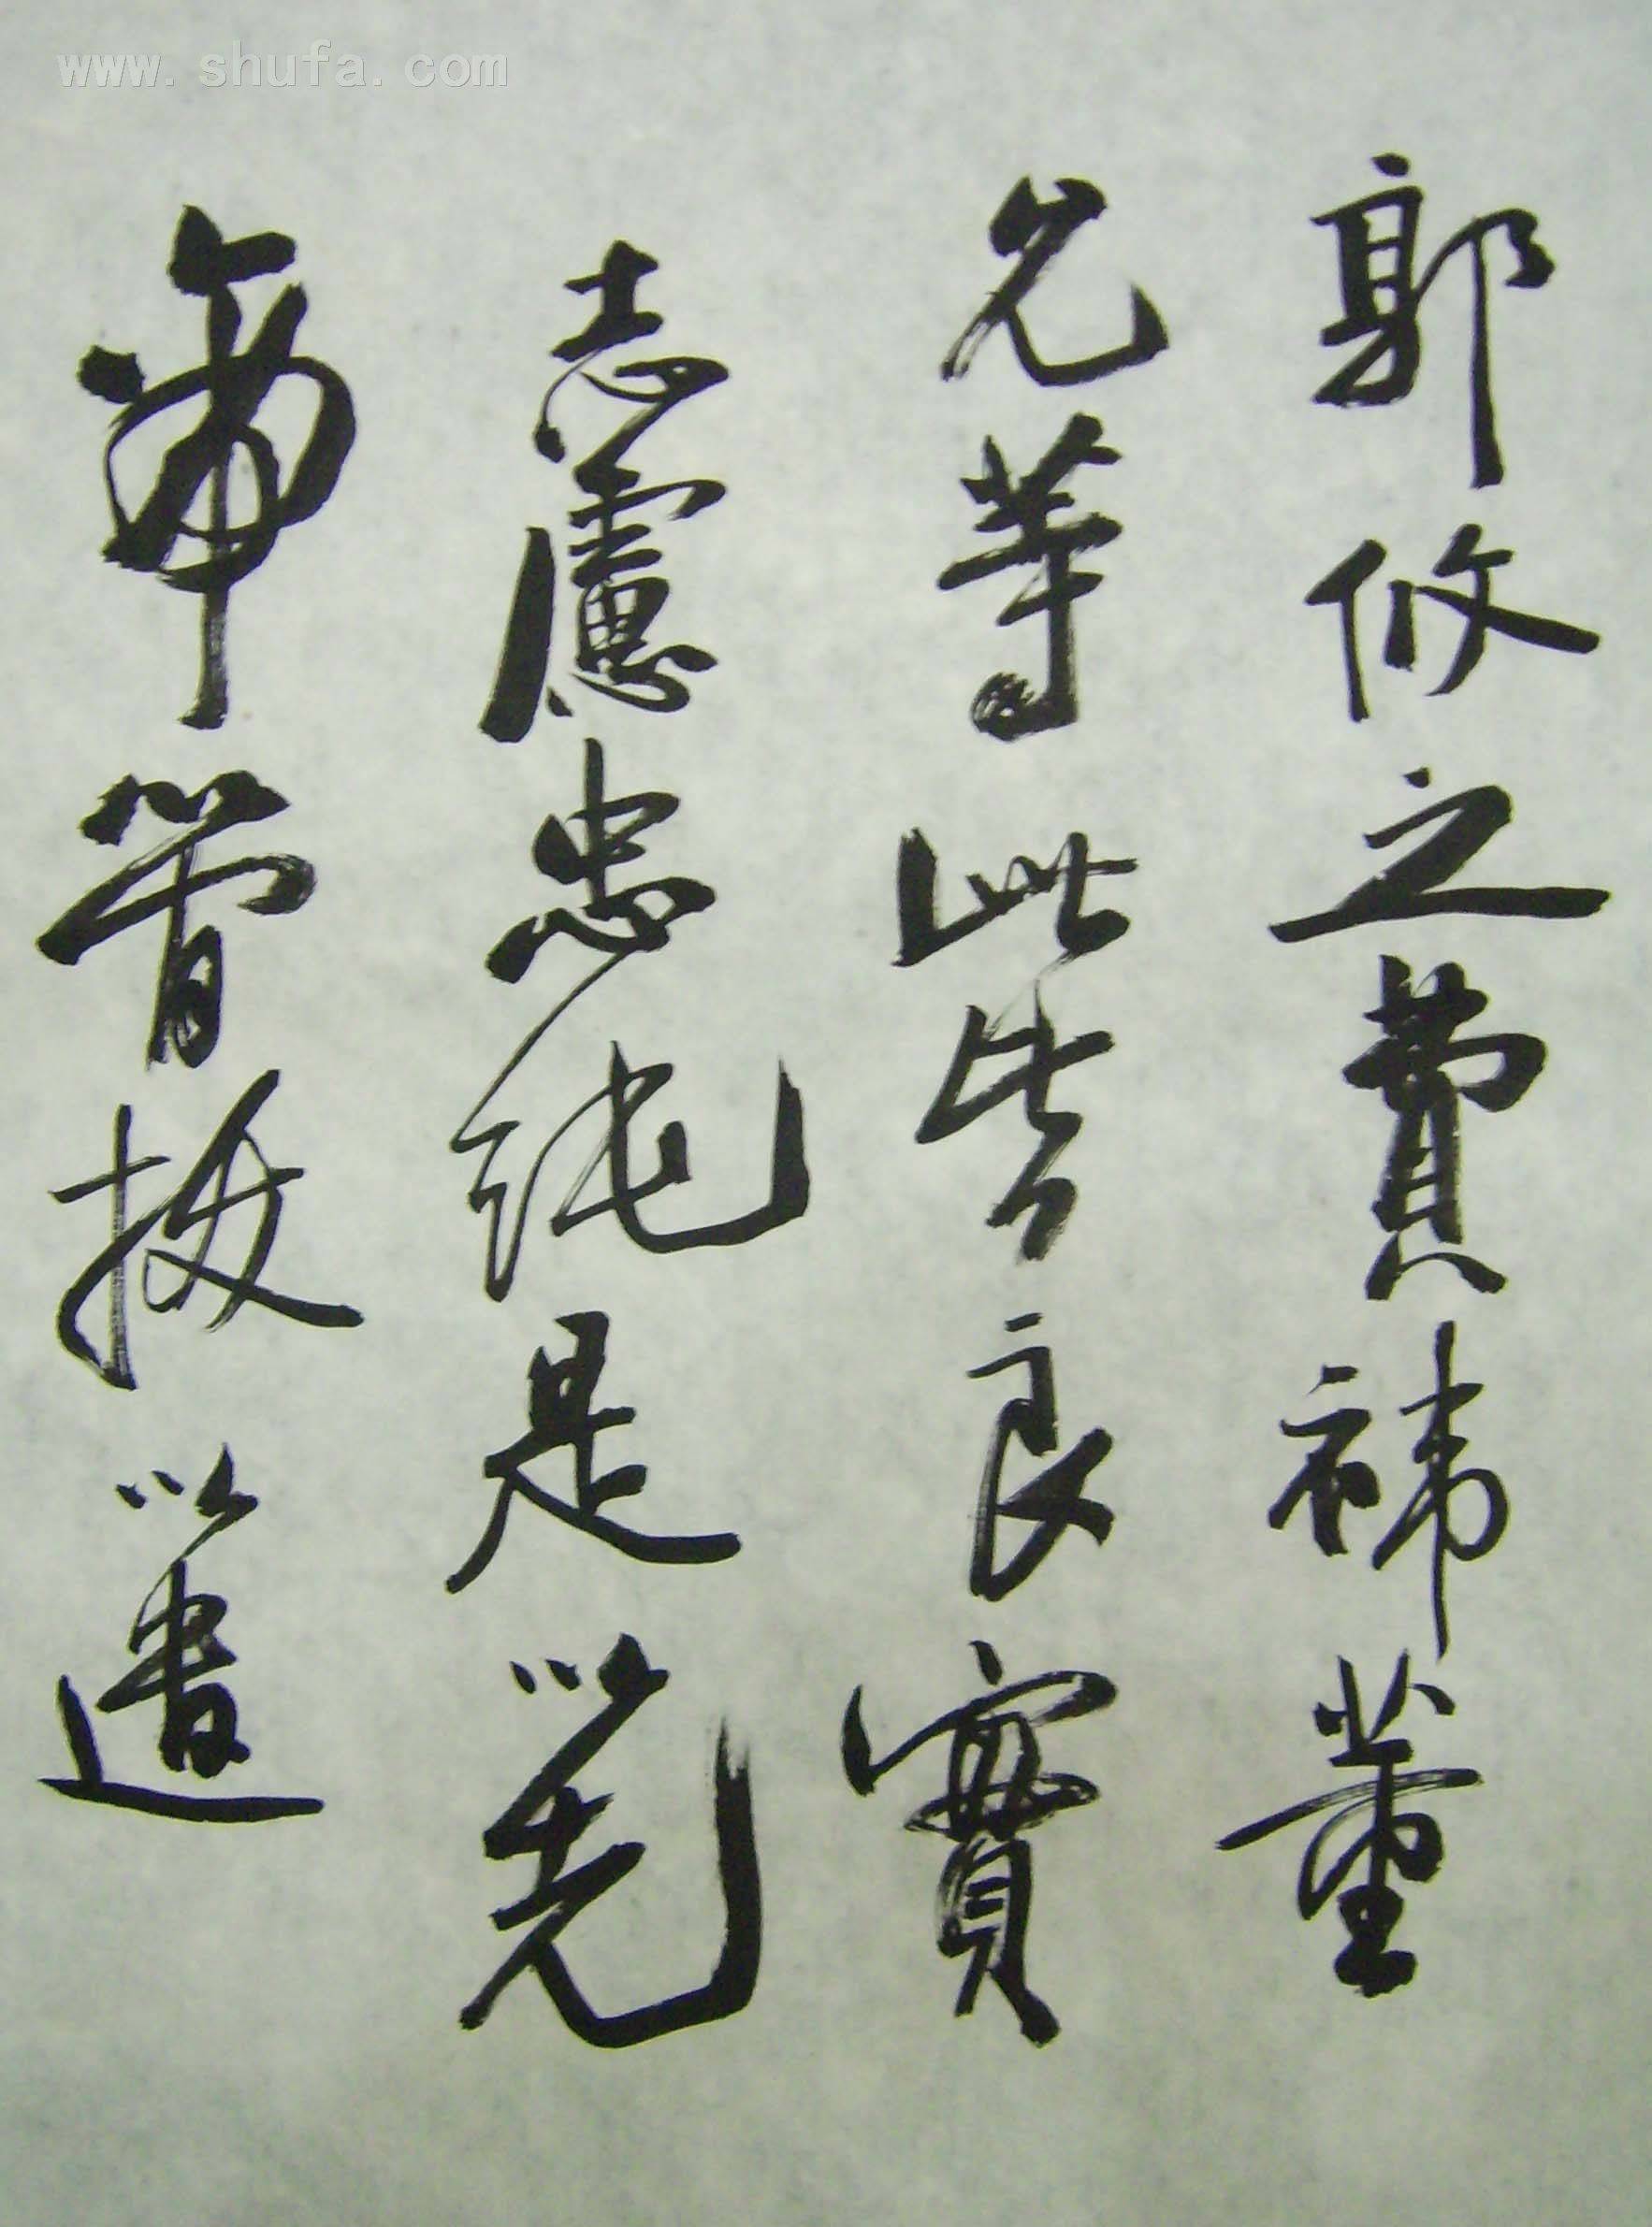 www.shufa.com
郭攸之費禕董
允等此皆良實
志慮忠純是以先
帝簡拔以遺